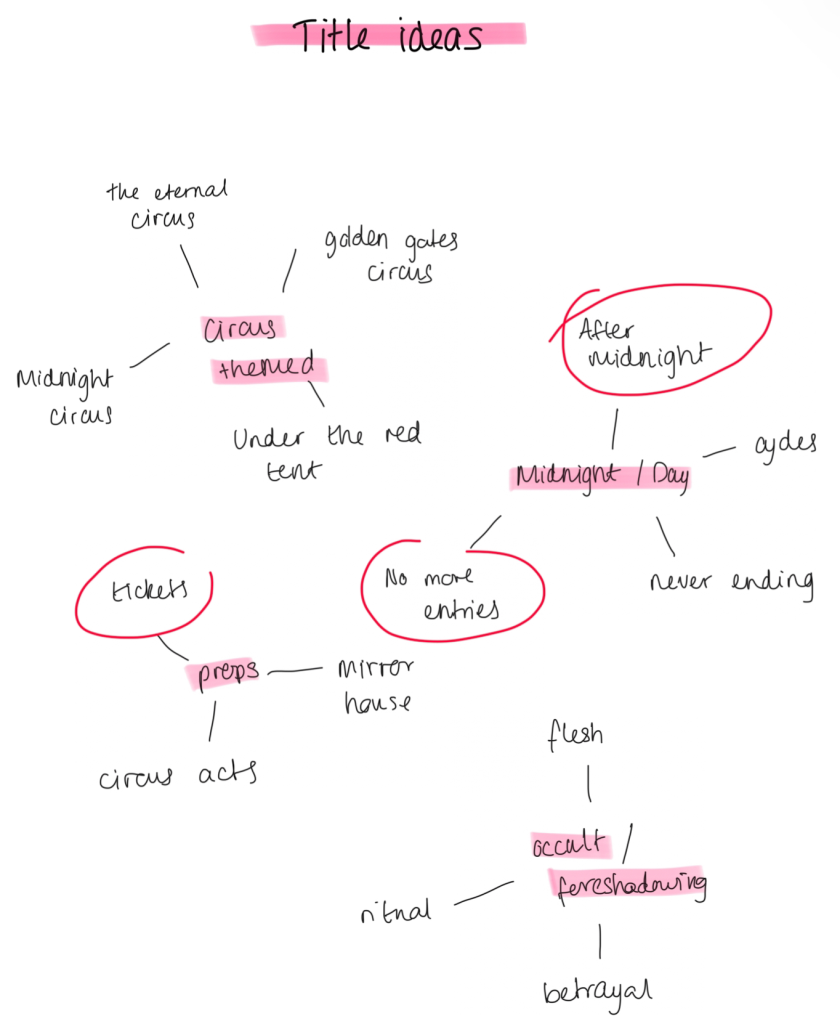 Title ideas
the eternal
circus
golden gates
circus
Circus
themed
Midnight
circus
Under the red
tent
After
midnight
Midnight / Day
cycles
No more
entries
never ending
tickets
props
mirror
house
circus acts
flesh
occult /
foreshadowing
ritual
betrayal